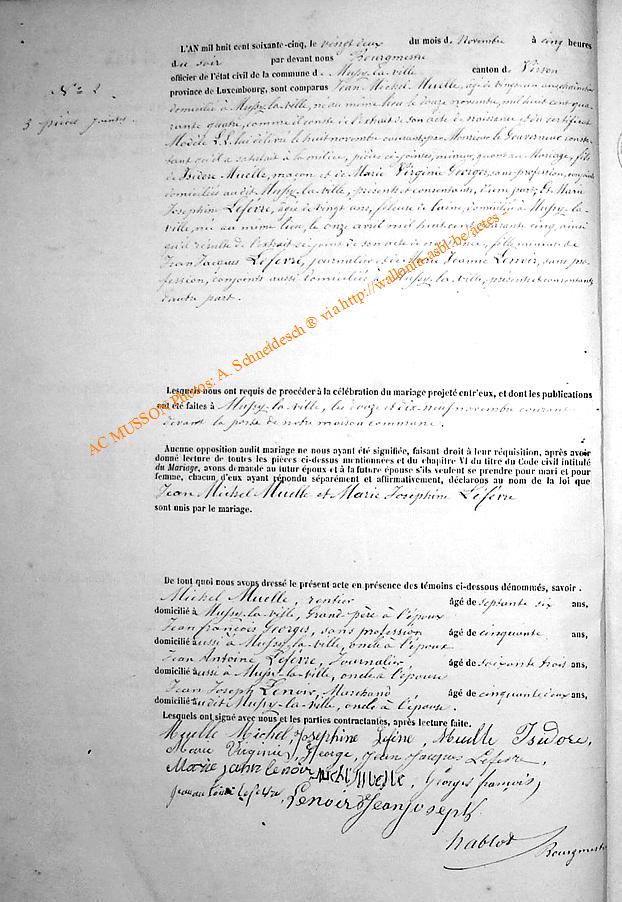 L'AN mil huit cent soixante-cinq, le vingt deux du mois de Novembre à cinq heures
du soir par devant nous Bourgmestre
officier de l'état civil de la commune de Mussy-la-ville canton de Virton
N° 2.
province de Luxembourg, sont comparus Jean Michel Muelle, âgé de vingt un ans
domicilié à Mussy-la-ville, né au même lieu le douze novembre, mil huit cent qua-
3 pièces jointes.
rante quatre, comme il conste de l'extrait de son acte de naissance, et du certificat
Modèle LL. lui délivré le huit novembre courant par Monsieur le Gouverneur consta-
tant qu'il a satisfait à la milice, pièces ci-jointes, mineur, quant au Mariage, fils
de Isidore Muelle, maçon et de Marie Virginie Georges, sans profession, conjoints
domiciliés au dit Mussy-la-ville, présents et consentants, d'une part; Et Marie
Josephine Lefèvre, âgée de vingt ans, fileuse de laine, domiciliée à Mussy-la-
ville, née au même lieu, le onze avril mil huit cent quarante cinq, ainsi
qu'il résulte de l'extrait ci-joint de son acte de naissance, fille mineure de
Jean Jacques Lefèvre, journalier et de Marie Jeanne Lenoir, sans pro-
fession, conjoints aussi domiciliés à Mussy-la-ville, présents et consentants
d'autre part.
Lesquels nous ont requis de procéder à la célébration du mariage projeté entr'eux, et dont les publications
ont été faites à Mussy-la-ville, les douze et dix neuf novembre courant
devant la porte de notre maison commune.
Aucune opposition audit mariage ne nous ayant été signifiée, faisant droit à leur réquisition, après avoir
donné lecture de toutes les pièces ci-dessus mentionnées et du chapitre VI du titre du Code civil intitulé
du Mariage, avons demandé au futur époux et à la future épouse s'ils veulent se prendre pour mari et pour
femme, chacun d'eux ayant répondu séparément et affirmativement, déclarons au nom de la loi que
Jean Michel Muelle et Marie Josephine Lefèvre
sont unis par le mariage.
De tout quoi nous avons dressé le présent acte en présence des témoins ci-dessous dénommés, savoir :
Michel Muelle, rentier âgé de septante six ans,
domicilié à Mussy-la-ville, Grand-père à l'époux
Jean françois Georges, sans profession âgé de cinquante ans,
domicilié aussi à Mussy-la-ville, oncle à l'époux
Jean Antoine Lefèvre, Journalier âgé de soixante trois ans,
domicilié aussi à Mussy-la-ville, oncle à l'épouse
Jean Joseph Lenoir, Marchand âgé de cinquante deux ans,
domicilié audit Mussy-la-ville, oncle à l'épouse.
Lesquels ont signé avec nous et les parties contractantes, après lecture faite.
Muelle Michel, Josephine Lefèvre, Muelle Isidore,
Marie Virginie George, Jean Jacques Lefèvre,
Marie jeanne lenoir Michel Muelle, Georges françois,
Lefèvre Lenoir Jean joseph
hablot
Bourgmestre
AC MUSSON Photos: A. Schneidesch ® via http://wallonia.asbl.be/actes